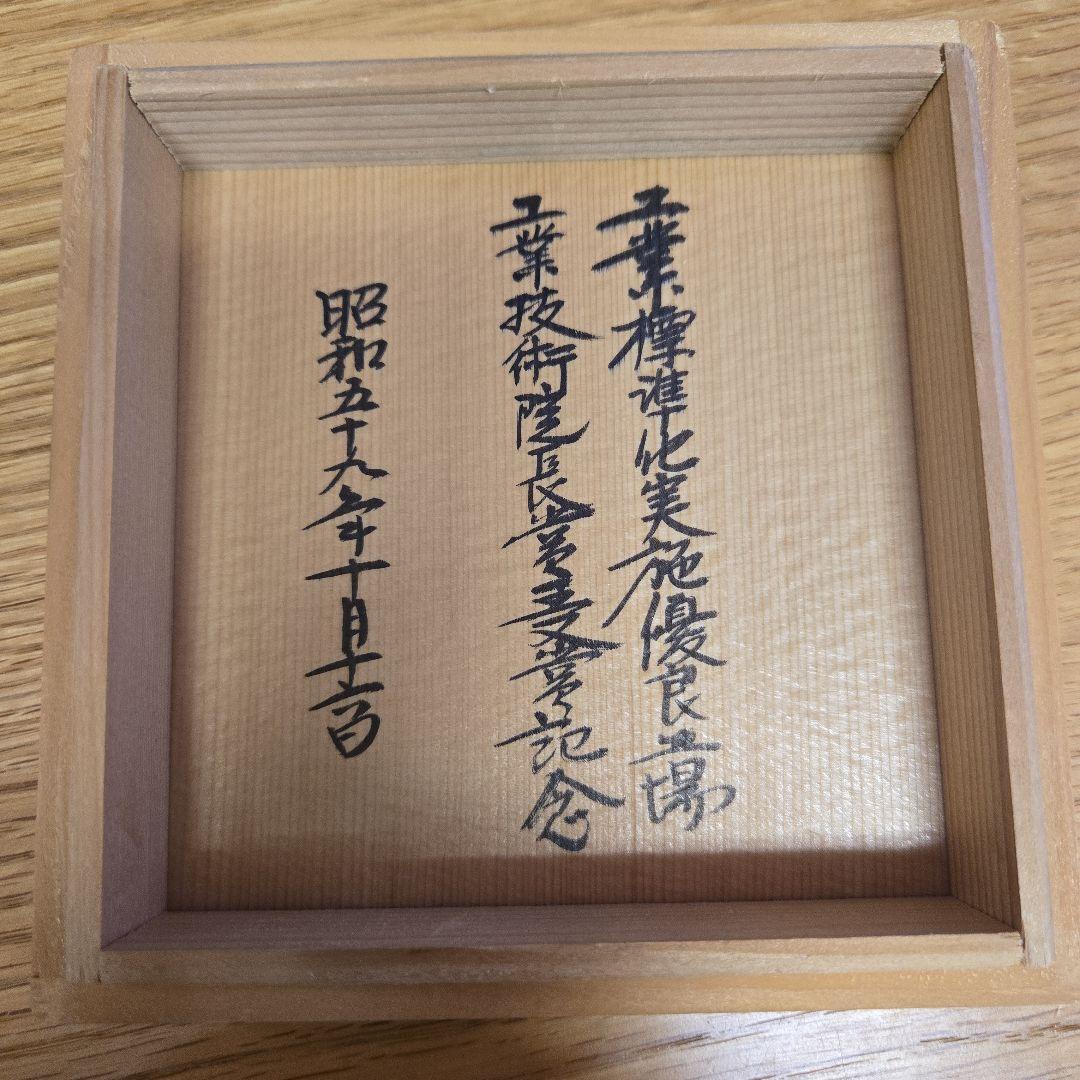 工業標準化実施優良工場
工業技術院長賞受賞記念
昭和五十九年十月十六日